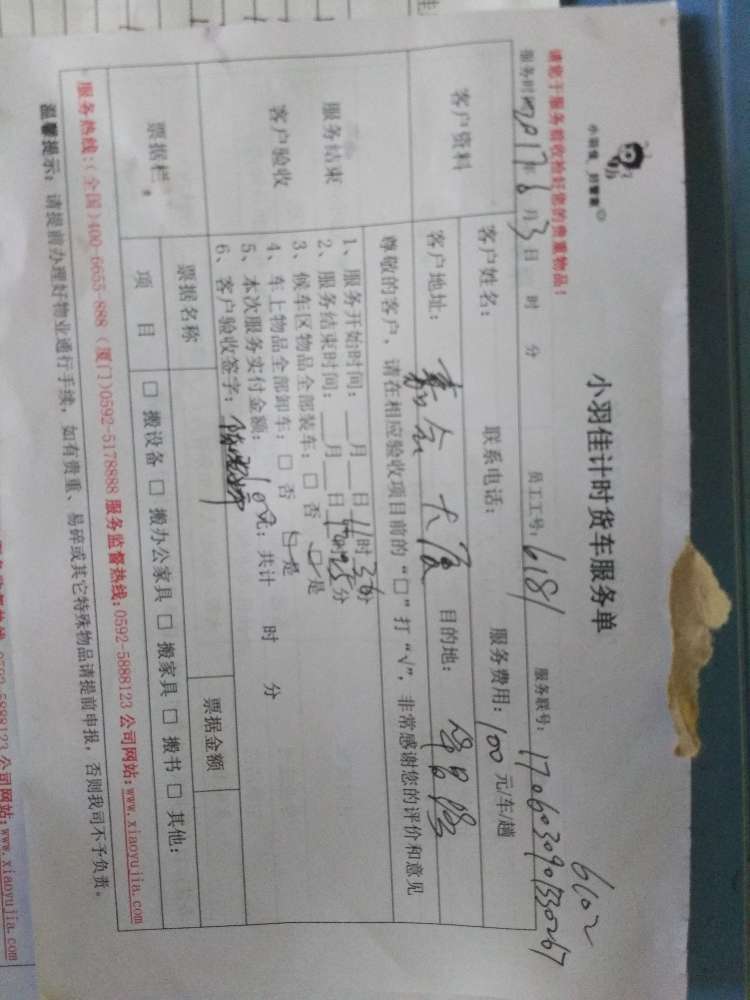 小羽佳 好管家
小羽佳计时货车服务单
6102
请您于服务验收捡好您的贵重物品!
服务时间2017年6月3日 时 分 员工工号:6181 服务联号:
客户资料
客户姓名: 联系电话: 服务费用:100元/车/趟
客户地址: 大厦 目的地:
服务结束
客户验收
尊敬的客户,请在相应验收项目前的“□”打“√”,非常感谢您的评价和意见
1、服务开始时间: 月 日 11时36分
2、服务结束时间: 月 日 时25分
3、候车区物品全部装车:□ 否 □ 是
4、车上物品全部卸车:□ 否 □ 是
5、本次服务实付金额:100元;共计 时 分
6、客户验收签字:
票据栏
票据名称 票据金额
项 目 □ 搬设备 □ 搬办公家具 □ 搬家具 □ 搬书 □ 其他:
服务热线:(全国)400-6655-888 (厦门)0592-5178888 服务监督热线:0592-5888123 公司网站:www.xiaoyujia.com
温馨提示: 请提前办理好物业通行手续,如有贵重、易碎或其它特殊物品请提前申报,否则我司不予负责。
0592-5888123 公司网站:www.xiaoyujia.com